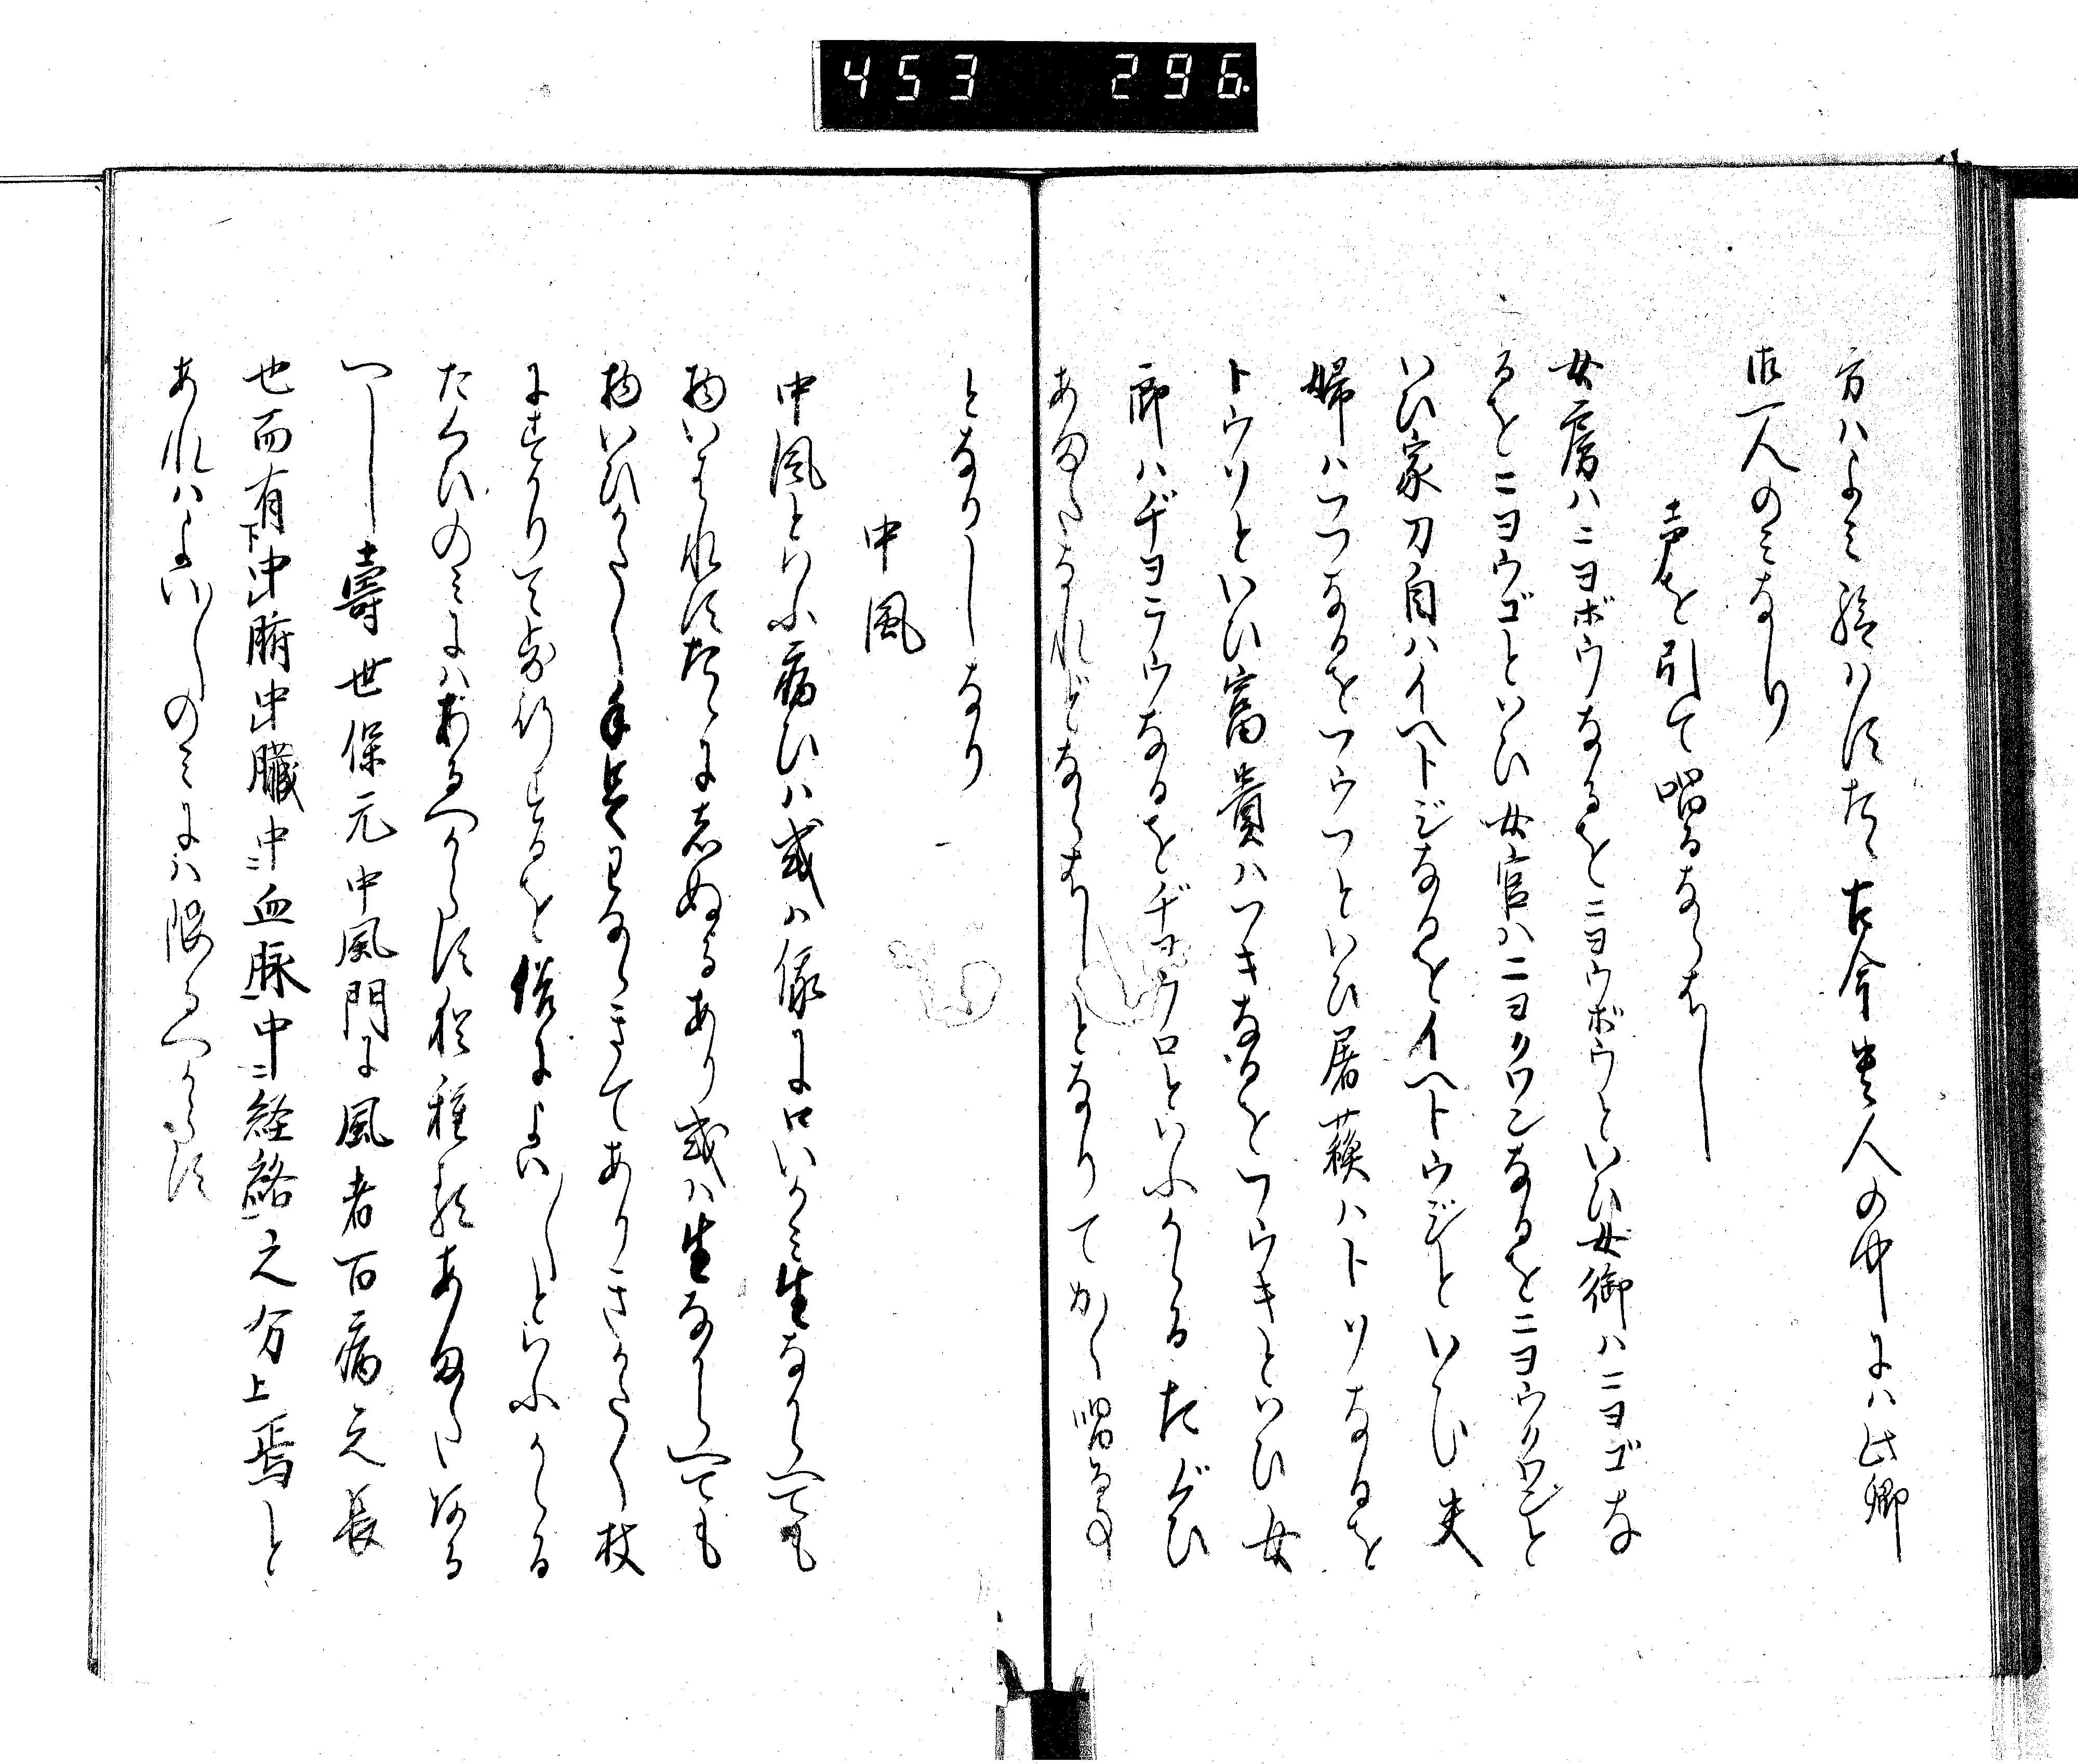 453 296
方ハよミ給ハす たゝ古今貴人の中にハ此卿
御一人のミなり
声を引て唱るならハし
女房ハニヨボウなるをニヨウボウといひ女御ハニヨゴな
るをニヨウゴといひ女官ハニヨクワンなるをニヨウクワンと
いひ家刀自ハイヘトジなるをイヘトウジといひ夫
婦ハフフなるをフウフといひ屠蘓ハトソなるを
トウソといひ富貴ハフキなるをフウキといひ女
郎ハヂヨラウなるをヂヨウロといふかゝるたぐひ
あまたあれどならはしとなりてかく唱る事
となりしなり
中風
中風といふ病ひハ或ハ俄に口いかミ生なからへても
物いはれすたゝに志ぬるあり或ハ生なからへても
物いひかたく手足わなゝきてありきかたく杖
にすかりて歩行するを俗によいしといふかゝる
たくひのミにハあるへからす猶種類あまたなる
へし 壽世保元中風門に風者百病之長
也而有下中腑中臓中血脉中経絡之分上焉と
あれハよいしのミにハ限るへからす